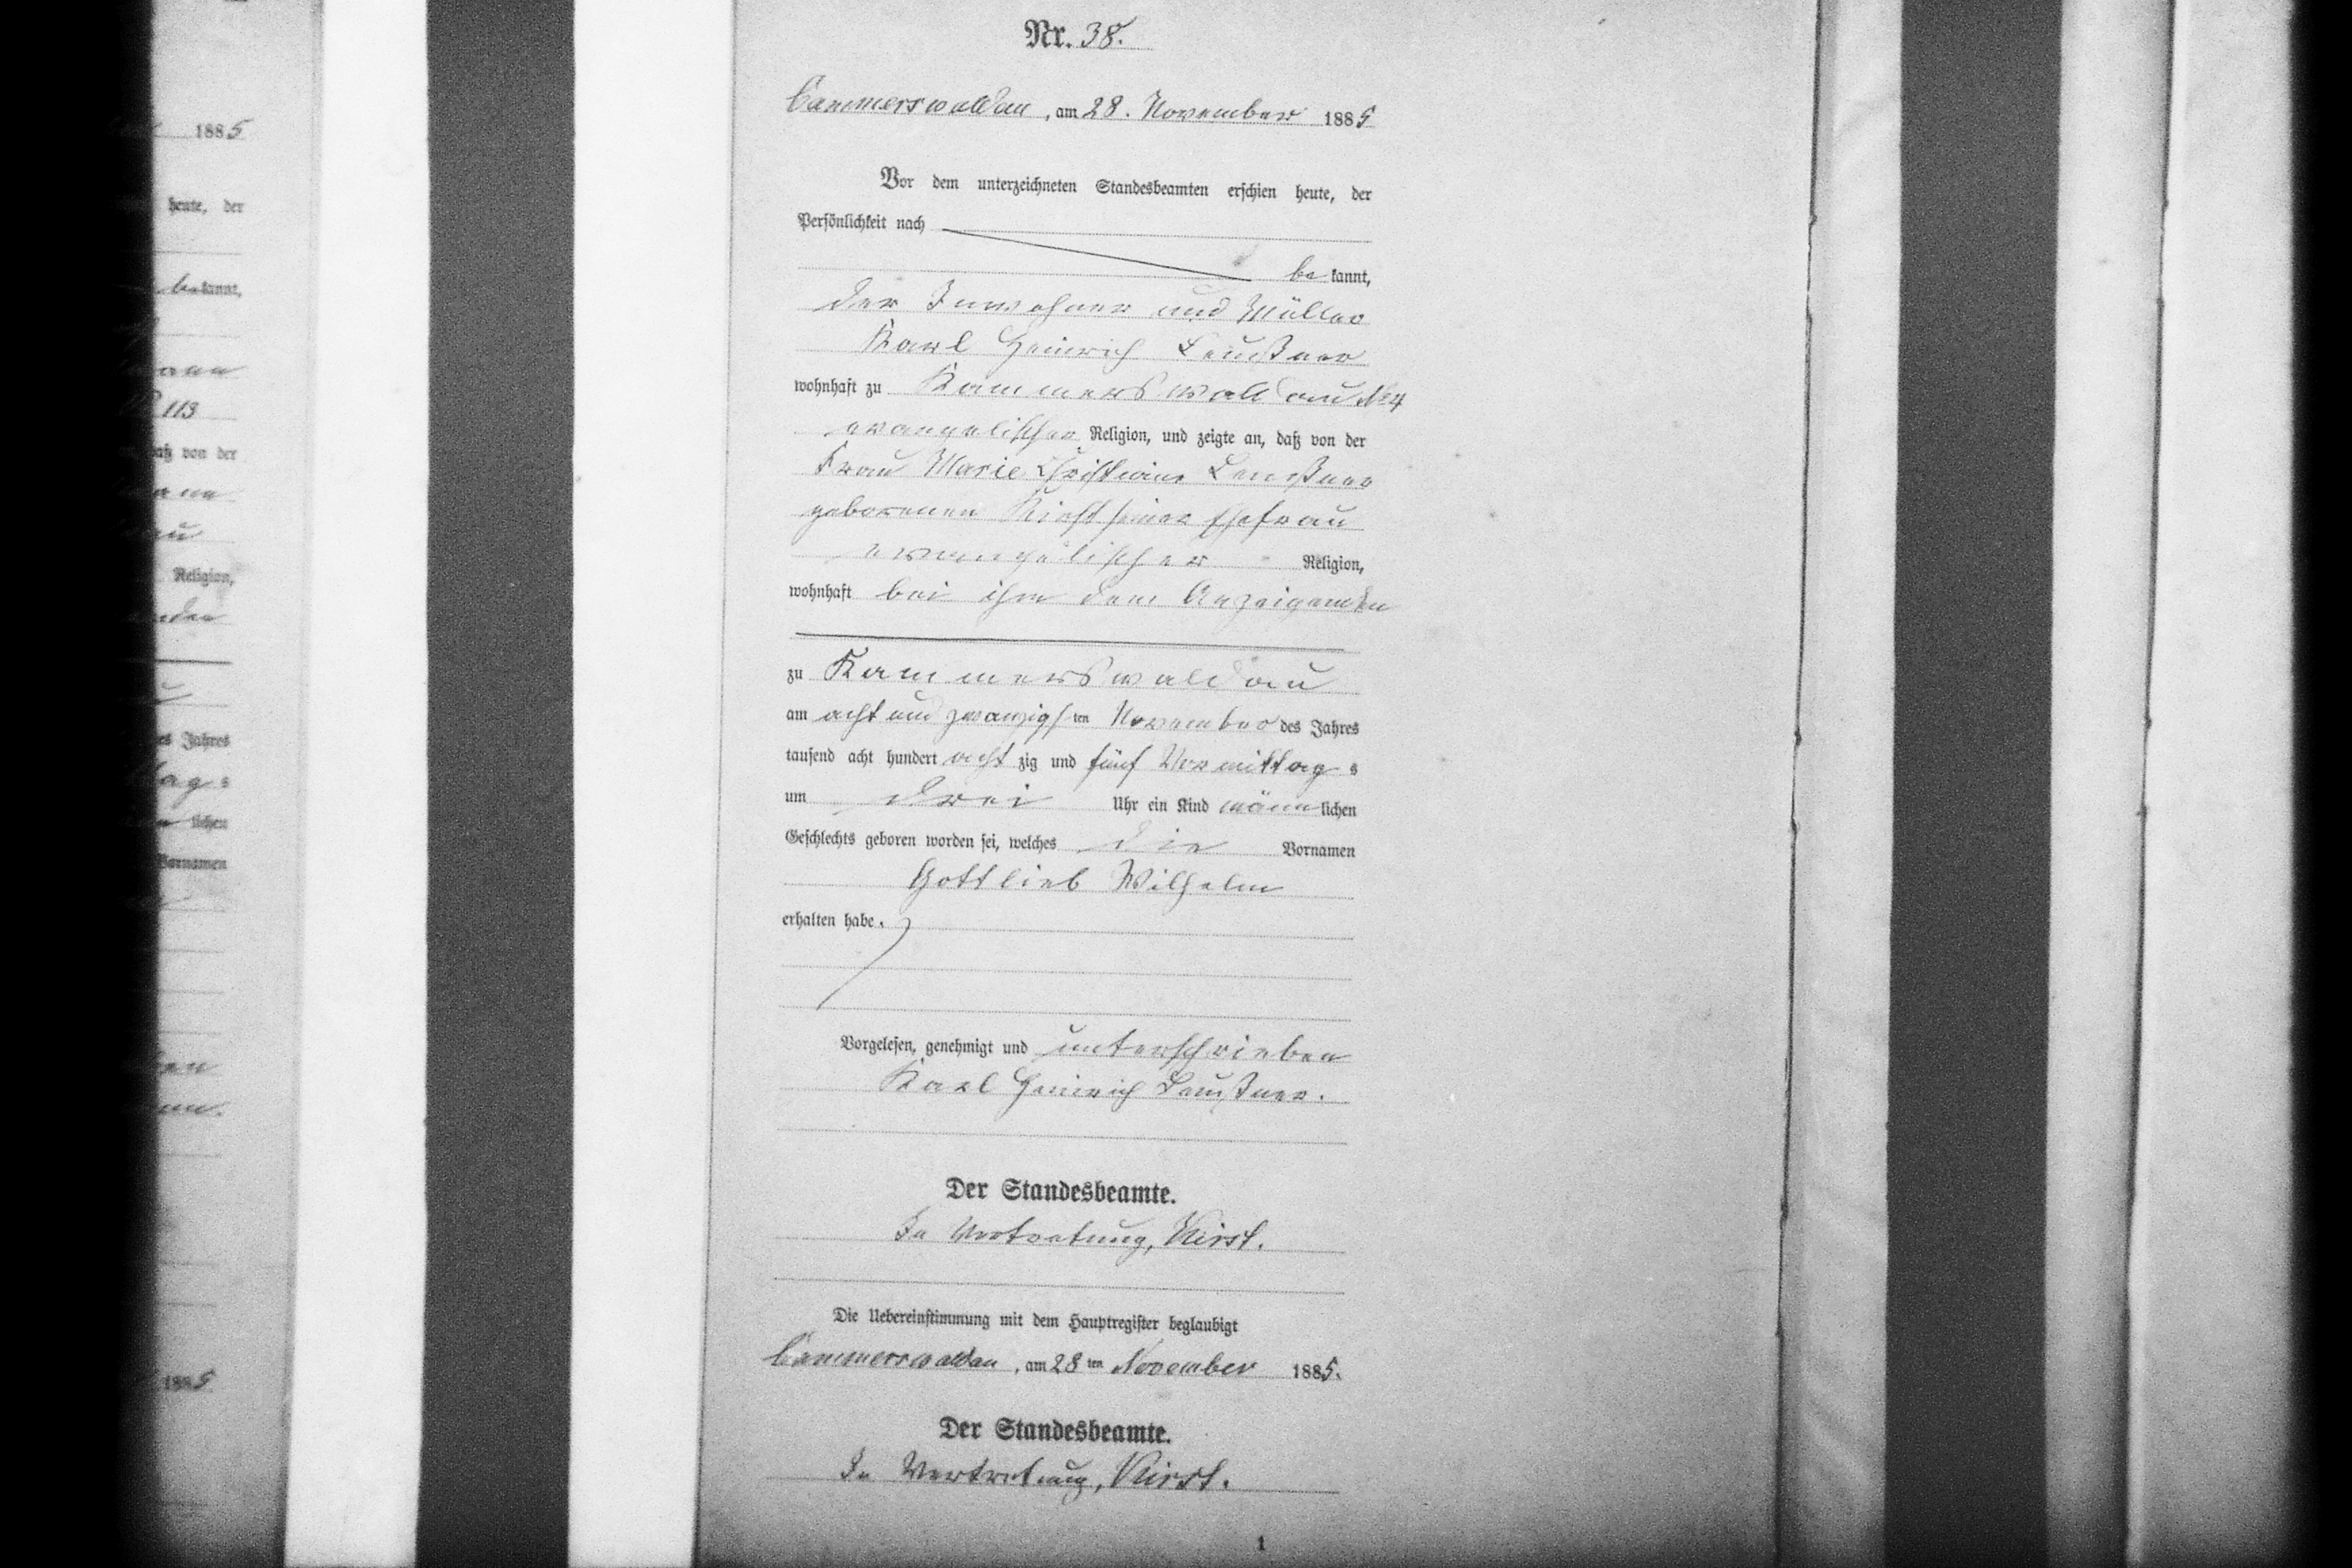 Nr. 38.
Cammerswaldau, am 28. November 1885
Vor dem unterzeichneten Standesbeamten erschien heute, der
Persönlichkeit nach
be kannt,
der Inwohner und Müller
Karl Heinrich
wohnhaft zu Kammerswaldau № 4
evangelischer Religion, und zeigte an, daß von der
Frau Marie Christiane
geborenen seiner Ehefrau
evangelischer Religion,
wohnhaft bei ihm dem Anzeigenden
zu Kammerswaldau
am acht und zwanzigsten November des Jahres
tausend acht hundert acht zig und fünf Vormittag s
um drei Uhr ein Kind männlichen
Geschlechts geboren worden sei, welches die Vornamen
Gottlieb Wilhelm
erhalten habe.
Vorgelesen, genehmigt und unterschrieben
Karl Heinrich
Der Standesbeamte.
In Vertretung, Kirst.
Die Uebereinstimmung mit dem Hauptregister beglaubigt
Cammerswaldau, am 28 ten November 1885.
Der Standesbeamte.
In Vertretung, Kirst.
1
1885
heute, der
bekannt,
113
von der
Religion,
Jahres
lichen
Vornamen
1885